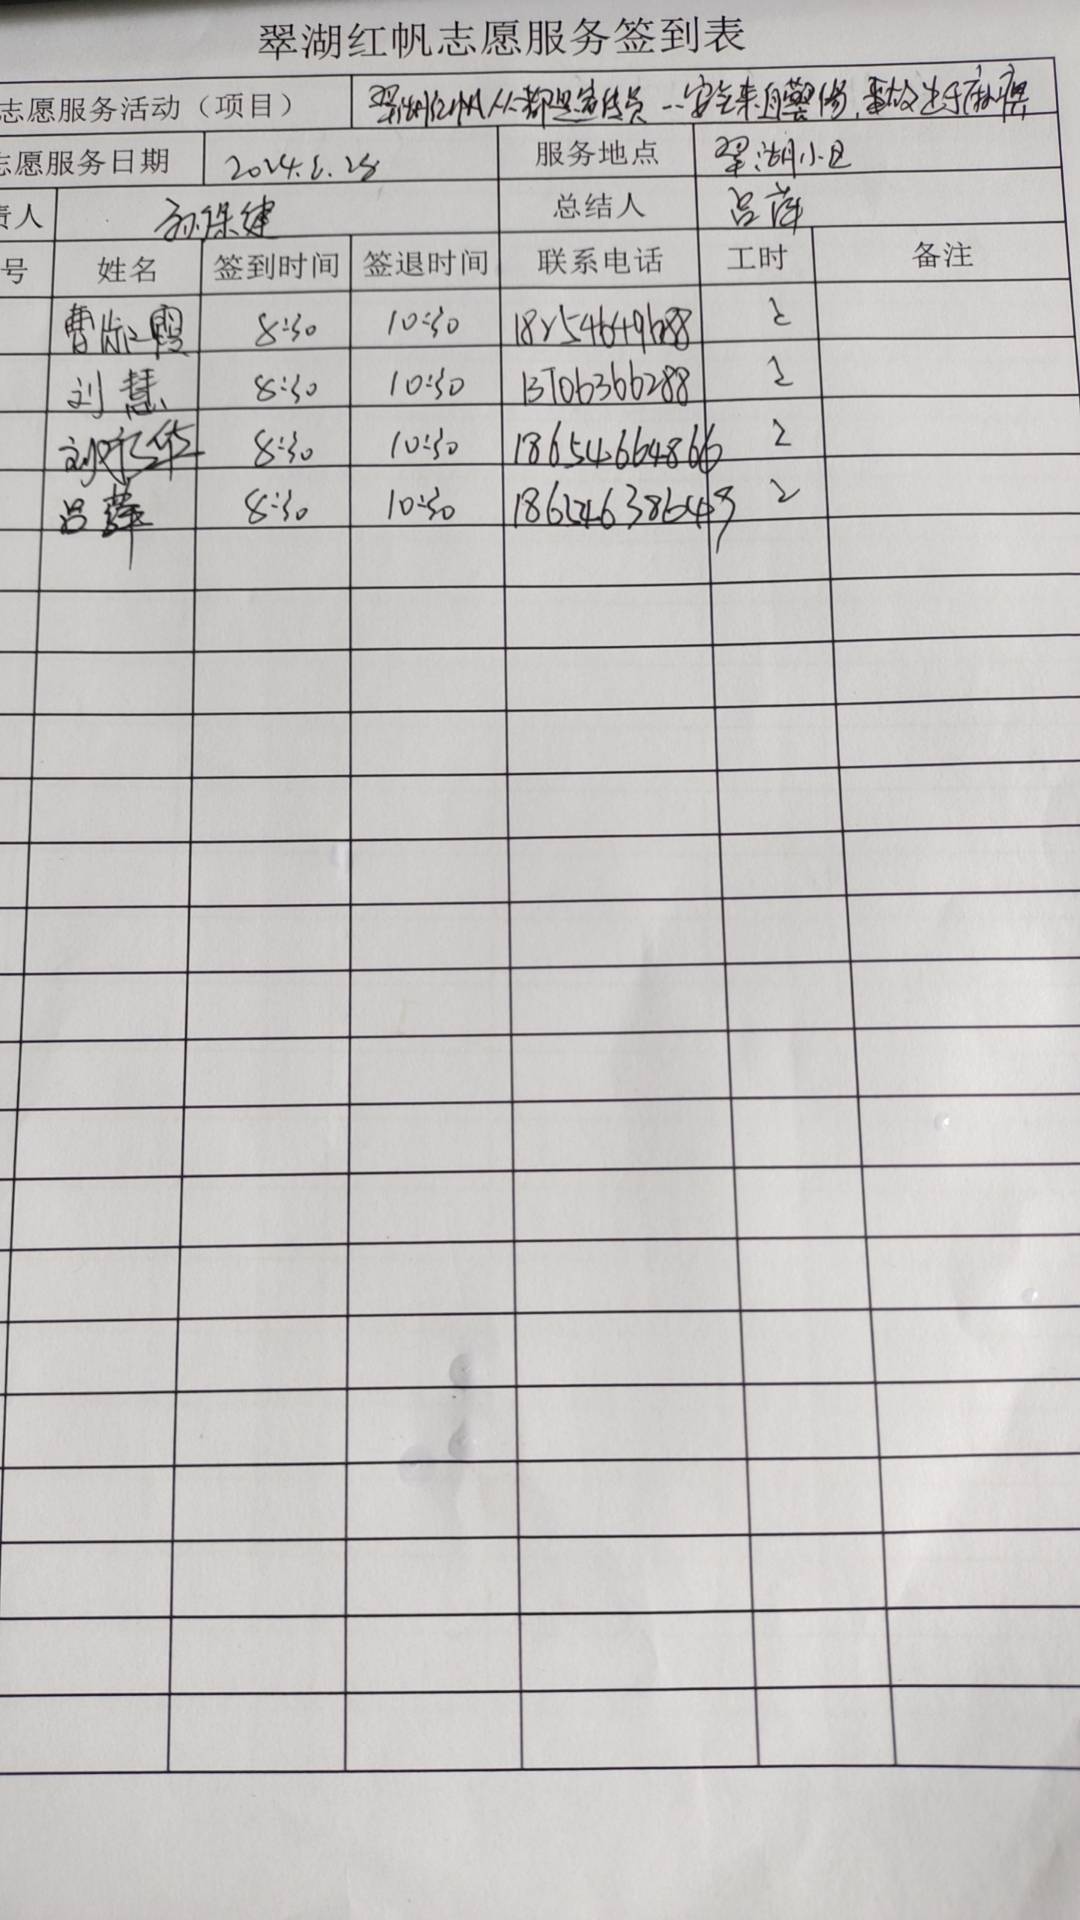 翠湖红帆志愿服务签到表
志愿服务活动（项目） 翠湖红帆人人都是宣传员--安全来自警惕，事故出于麻痹
志愿服务日期 2024.6.28 服务地点 翠湖小区
责人 孙保健 总结人 吕萍
号 姓名 签到时间 签退时间 联系电话 工时 备注
曹 霞 8:30 10:30 18254649688 2
刘慧 8:30 10:30 13706366288 2
刘 华 8:30 10:30 18654664866 2
吕萍 8:30 10:30 2